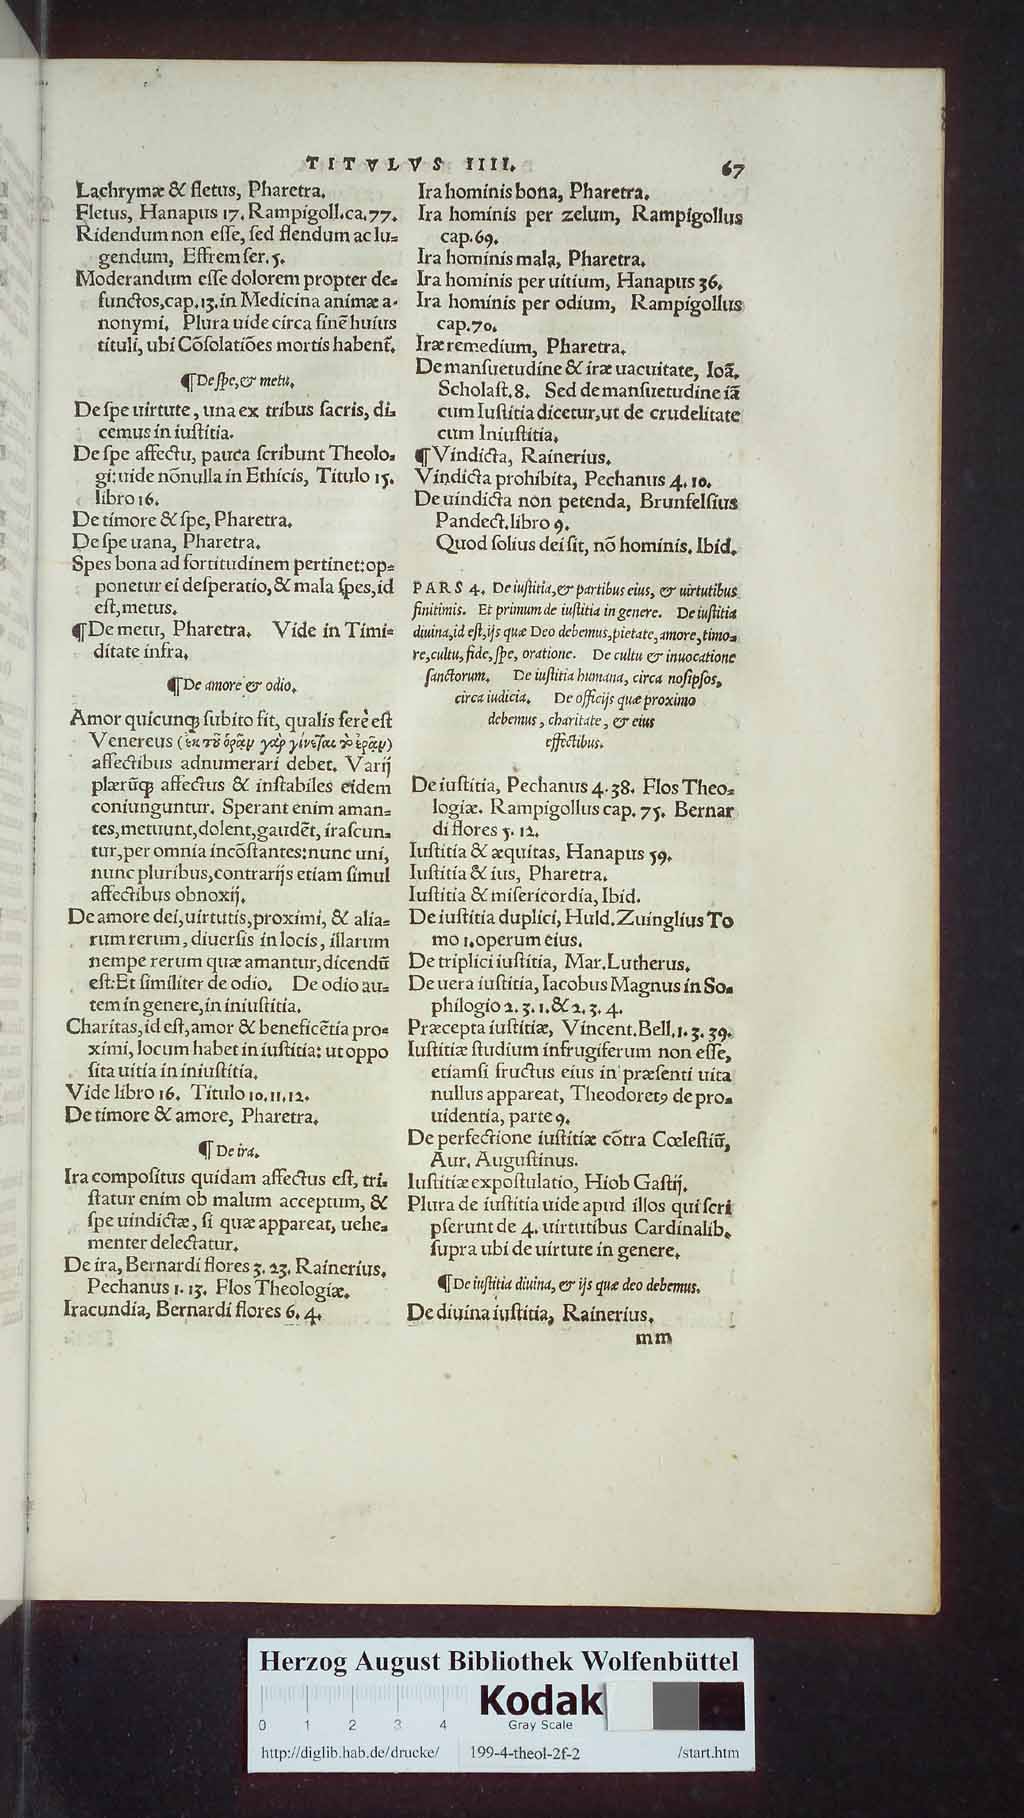 TITVLVS IIII.
67
Lachrymæ & fletus, Pharetra.
Fletus, Hanapus 17. Rampigoll.ca.77.
Ridendum non esse, sed flendum ac lu=
gendum, Effrem ser. 5.
Moderandum esse dolorem propter de=
functos, cap. 13. in Medicina animæ a=
nonymi. Plura uide circa finē huius
tituli, ubi Cōsolatiōes mortis habent̃.
¶ De spe, & metu.
De spe uirtute, una ex tribus sacris, di=
cemus in iustitia.
De spe affectu, pauca scribunt Theolo=
gi: uide nōnulla in Ethicis, Titulo 15.
libro 16.
De timore & spe, Pharetra.
De spe uana, Pharetra.
Spes bona ad fortitudinem pertinet: op=
ponetur ei desperatio, & mala spes, id
est, metus.
¶ De metu, Pharetra. Vide in Timi=
ditate infra.
¶ De amore & odio.
Amor quicunq; subito fit, qualis ferè est
Venereus (ἐκ τοῦ ὁρᾷν γὰρ γίνεται τὸ ἐρᾷν)
affectibus adnumerari debet. Varij
plærūq; affectus & instabiles eidem
coniunguntur. Sperant enim aman=
tes, metuunt, dolent, gaudēt, irascun=
tur, per omnia incōstantes: nunc uni,
nunc pluribus, contrarijs etiam simul
affectibus obnoxij.
De amore dei, uirtutis, proximi, & alia=
rum rerum, diuersis in locis, illarum
nempe rerum quæ amantur, dicendū
est: Et similiter de odio. De odio au=
tem in genere, in iniustitia.
Charitas, id est, amor & beneficētia pro=
ximi, locum habet in iustitia: ut oppo
sita uitia in iniustitia.
Vide libro 16. Titulo 10.11.12.
De timore & amore, Pharetra.
¶ De ira.
Ira compositus quidam affectus est, tri=
statur enim ob malum acceptum, &
spe uindictæ, si quæ appareat, uehe=
menter delectatur.
De ira, Bernardi flores 3. 23. Rainerius.
Pechanus 1. 13. Flos Theologiæ.
Iracundia, Bernardi flores 6. 4.
Ira hominis bona, Pharetra.
Ira hominis per zelum, Rampigollus
cap. 69.
Ira hominis mala, Pharetra.
Ira hominis per uitium, Hanapus 36.
Ira hominis per odium, Rampigollus
cap. 70.
Iræ remedium, Pharetra.
De mansuetudine & iræ uacuitate, Ioā.
Scholast. 8. Sed de mansuetudine iā
cum Iustitia dicetur, ut de crudelitate
cum Iniustitia.
¶ Vindicta, Rainerius.
Vindicta prohibita, Pechanus 4. 10.
De uindicta non petenda, Brunfelsius
Pandect. libro 9.
Quod solius dei sit, nō hominis. Ibid.
PARS 4. De iustitia, & partibus eius, & uirtutibus
finitimis. Et primum de iustitia in genere. De iustitia
diuina, id est, ijs quæ Deo debemus, pietate, amore, timo=
re, cultu, fide, spe, oratione. De cultu & inuocatione
sanctorum. De iustitia humana, circa nosipsos,
circa iudicia. De officijs quæ proximo
debemus, charitate, & eius
effectibus.
De iustitia, Pechanus 4. 38. Flos Theo=
logiæ. Rampigollus cap. 75. Bernar
di flores 5. 12.
Iustitia & æquitas, Hanapus 59.
Iustitia & ius, Pharetra.
Iustitia & misericordia, Ibid.
De iustitia duplici, Huld. Zuinglius To
mo 1. operum eius.
De triplici iustitia, Mar. Lutherus.
De uera iustitia, Iacobus Magnus in So=
philogio 2. 3. 1. & 2. 3. 4.
Præcepta iustitiæ, Vincent. Bell. 1. 3. 39.
Iustitiæ studium infrugiferum non esse,
etiamsi fructus eius in præsenti uita
nullus appareat, Theodoretꝰ de pro=
uidentia, parte 9.
De perfectione iustitiæ cōtra Cœlestiū,
Aur. Augustinus.
Iustitiæ expostulatio, Hiob Gastij.
Plura de iustitia uide apud illos qui scri
pserunt de 4. uirtutibus Cardinalib.
supra ubi de uirtute in genere.
¶ De iustitia diuina, & ijs quæ deo debemus.
De diuina iustitia, Rainerius.
mm
Herzog August Bibliothek Wolfenbüttel
Kodak
Gray Scale
0 1 2 3 4
http://diglib.hab.de/drucke/ 199-4-theol-2f-2 /start.htm